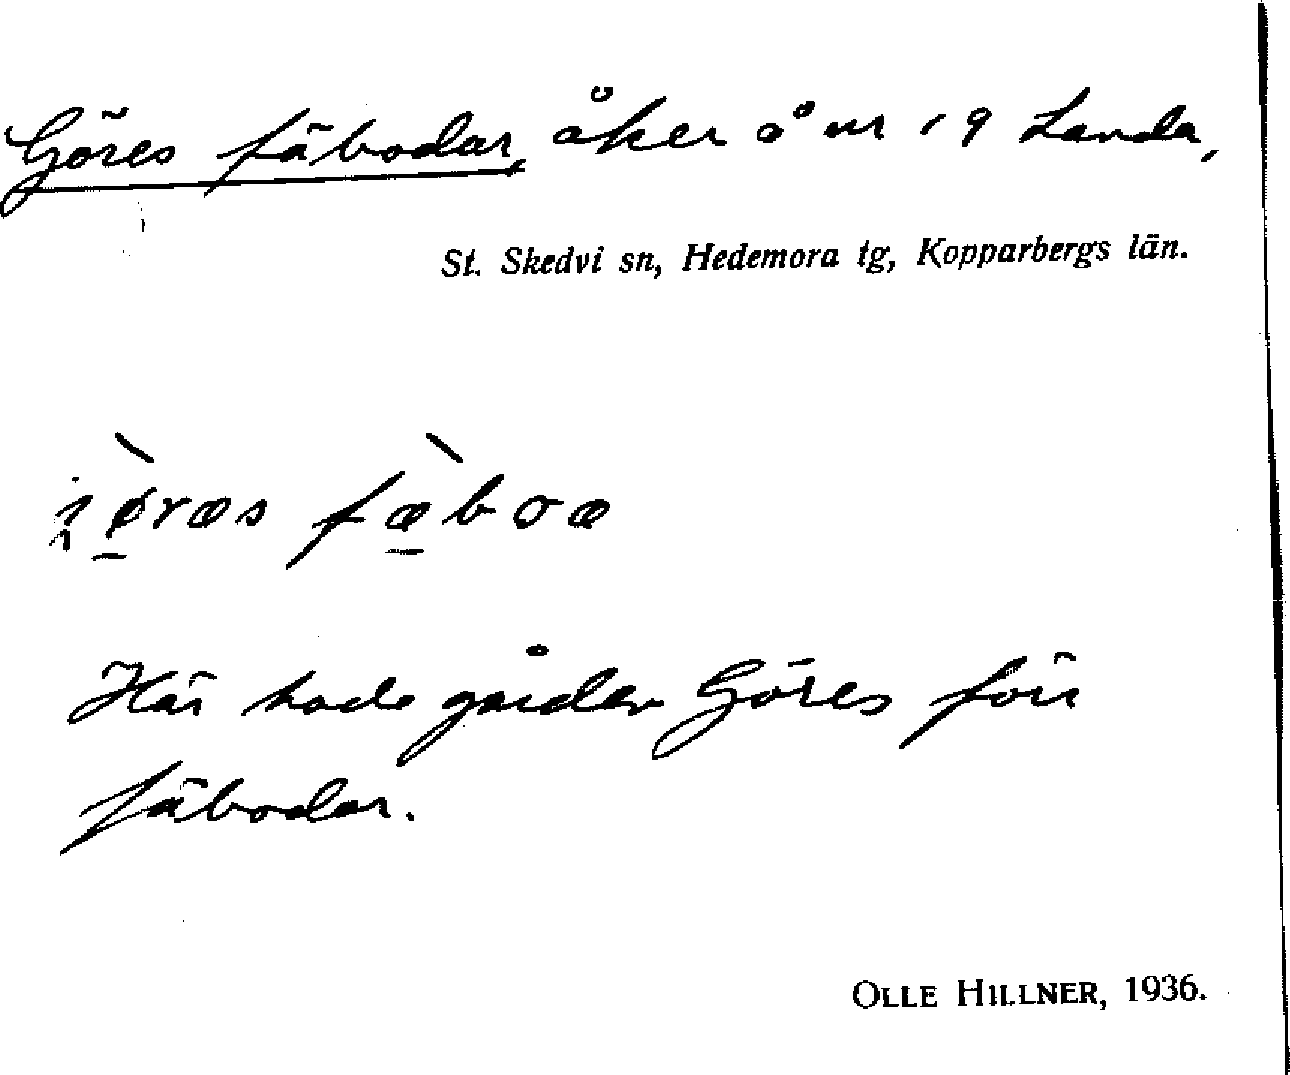 Göres fäbodar, åker å nr 19 Landa,
St. Skedvi sn, Hedemora tg, Kopparbergs län.
jø̀ræs fæ̀boæ
Här hade gården Göres förr
fäbodar.
OLLE HILLNER, 1936.